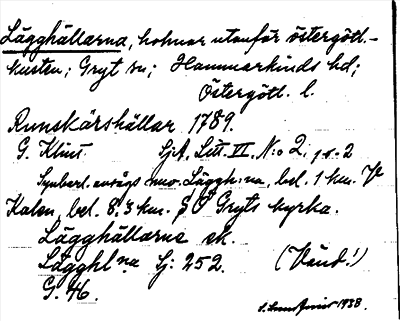 Lägghällarna, holmar utanför östergötl.-
kusten; Gryt sn; Hammarkinds hd;
Östergötl. l.
Runskärshällar 1789.
G. Klint. SjA, Litt. VI, N:o 2,
Läggh:na, bel. 1 km. V
Kalen, bel. 8,3 km. S O Gryts kyrka.
Lägghällarne ek.
Lägghl na Sj: 252. (Vänd!)
G. 46.
1938.